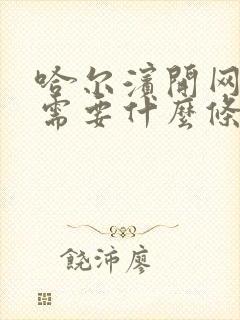 哈尔濱開网
需要什麼條
饶沛廖